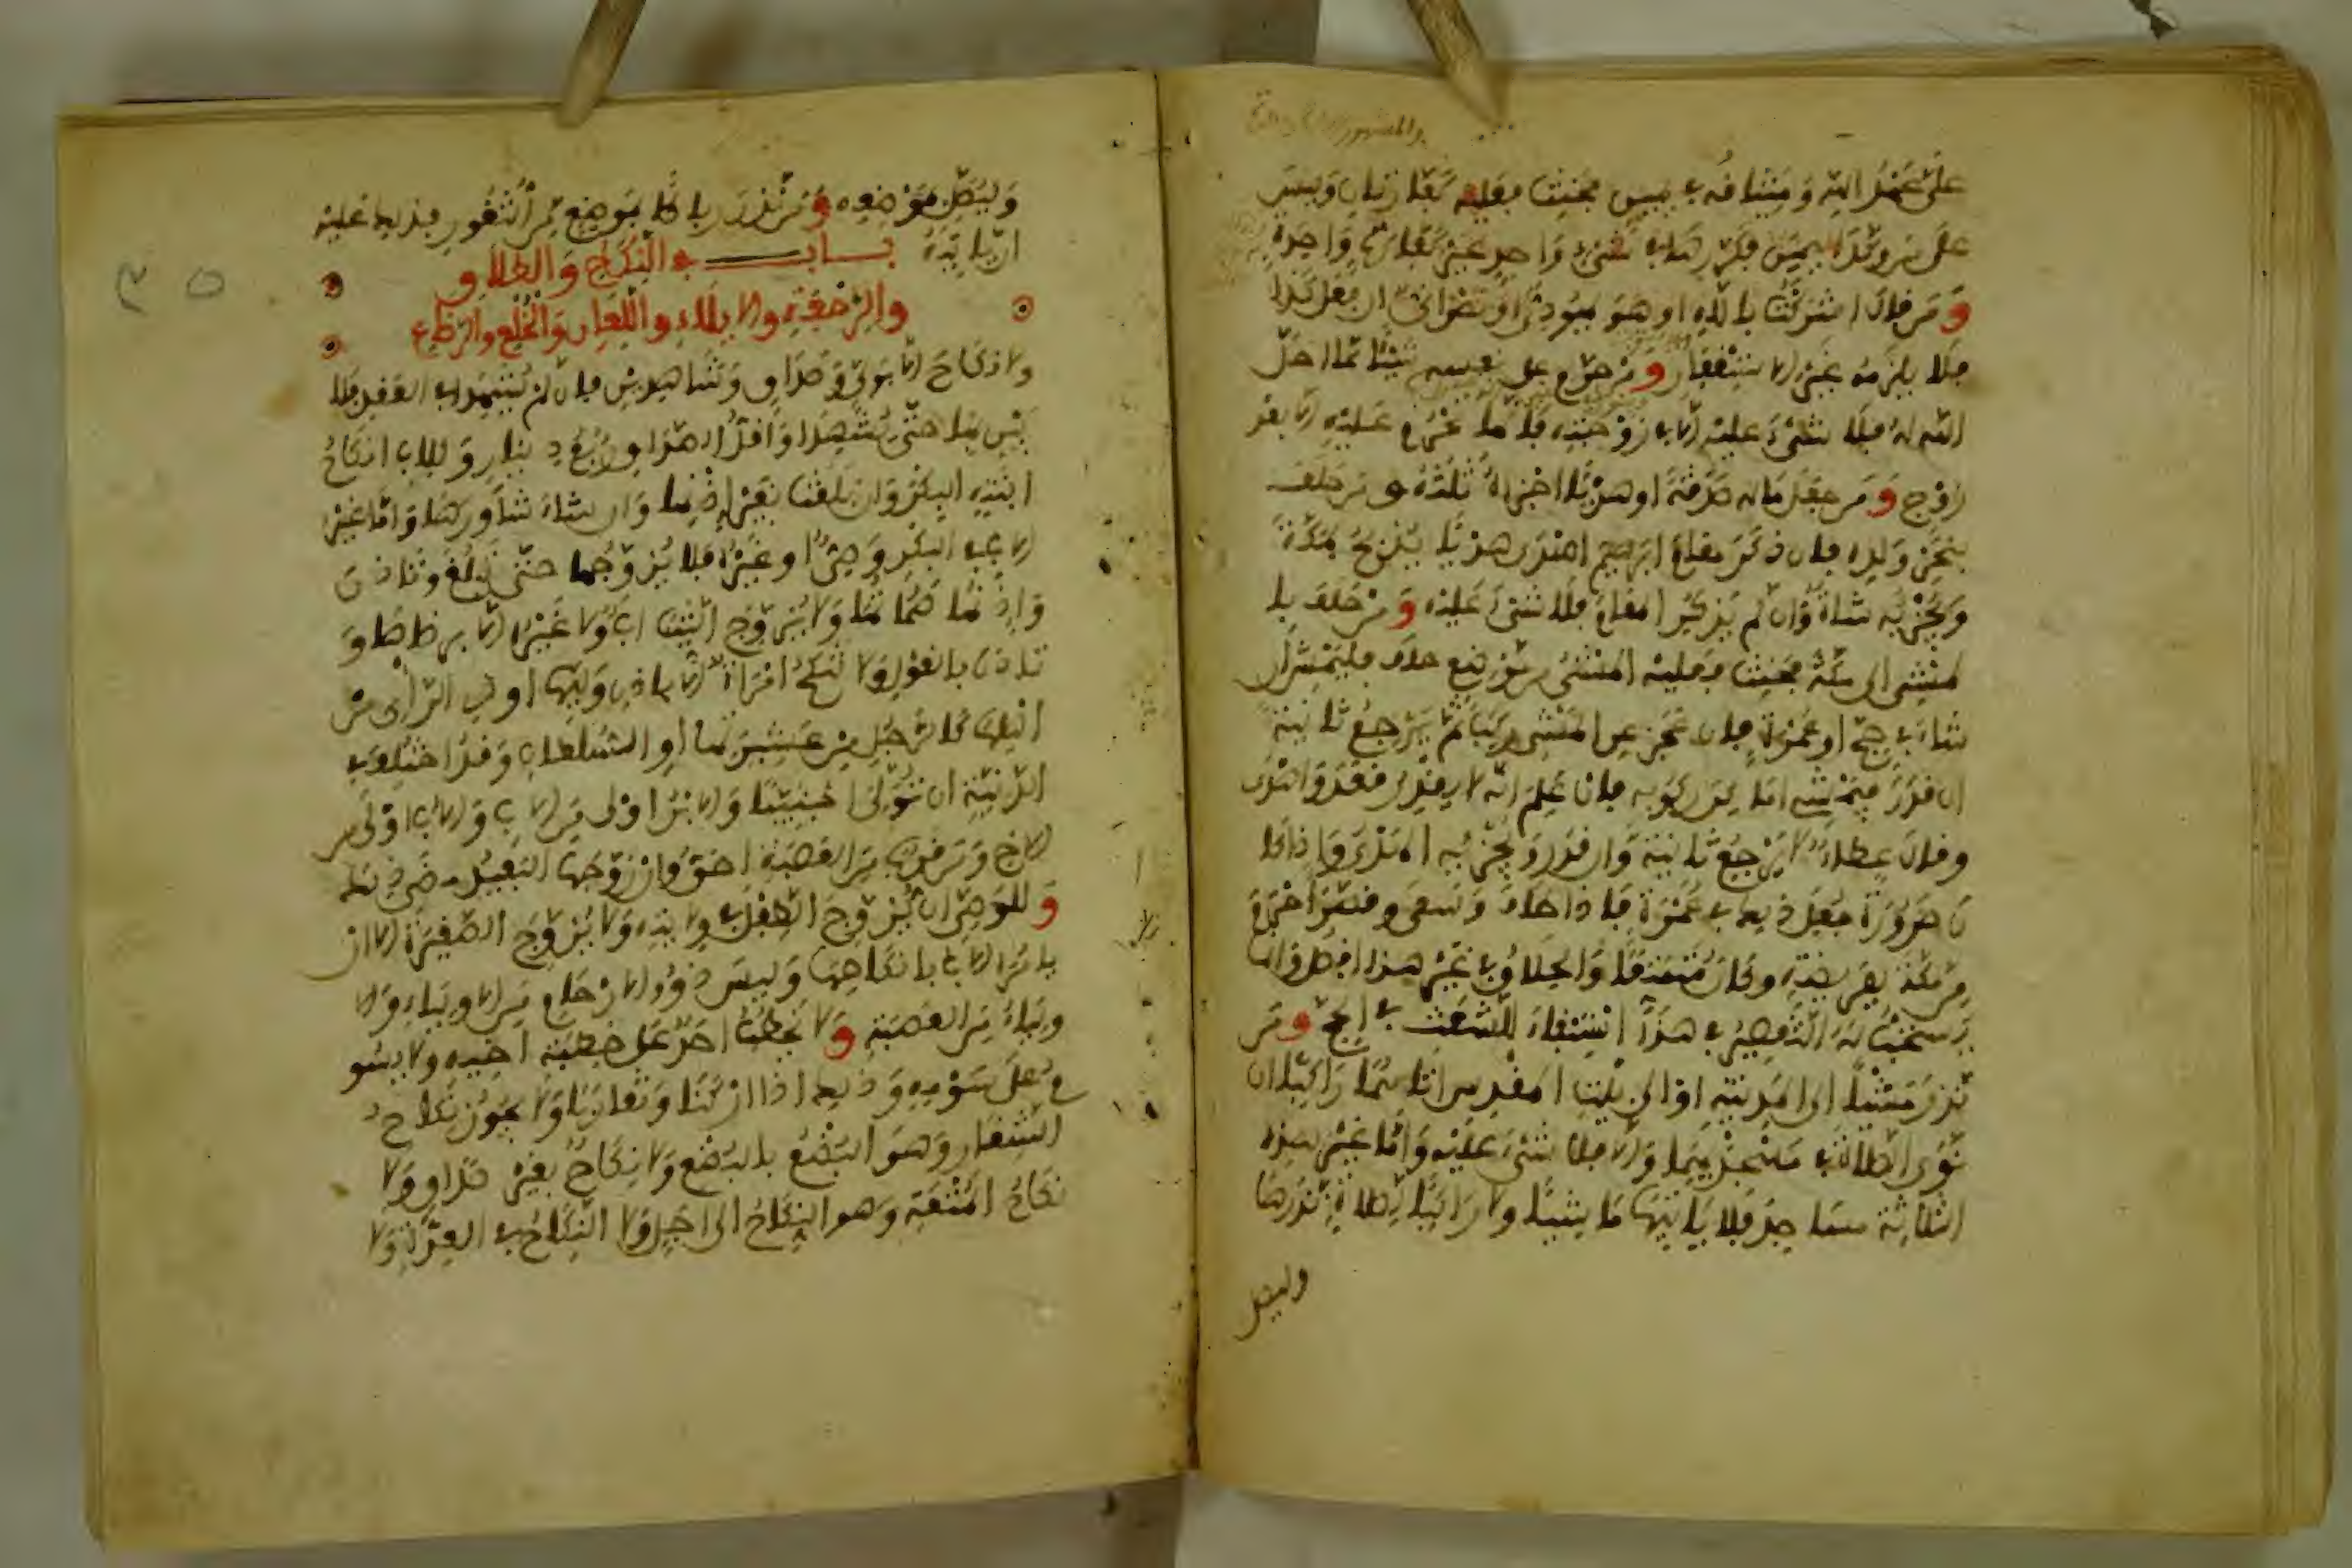 على عهد الله وميثاقه في يمين فحنث فعليه كفارتان وليس
على من وكد اليمين فكررها في شيء واحد غير كفارة واحدة
ومن قال اشركت بالله او هو يهودي او نصراني ان فعل كذا
فلا يلزمه غير الاستغفار ومن حرم على نفسه شيئا مما احل
الله له فلا شيء عليه الا في زوجته فانها تحرم عليه الا بعد
زوج ومن جعل ماله صدقة او هديا اجزاه ثلثه ومن حلف
بنحر ولده فان ذكر مقام ابرهيم اهدى هديا يذبح بمكة
وتجزيه شاة وان لم يذكر المقام فلا شيء عليه ومن حلف با
لمشي الى مكة فحنث فعليه المشي من موضع حلفه فليمش ان
شاء في حج او عمرة فان عجز عن المشي ركب ثم يرجع ثانية
ان قدر فيمشي اماكن ركوبه فان علم انه لا يقدر قعد واهدى
وقال عطاء لا يرجع ثانية وان قدر ويجزيه الهدي واذا كا
ن صرورة جعل ذلك في عمرة فاذا طاف وسعى وقصر احرم
من مكة بفريضته وكان متمتعا والحلاق في غير هذا افضل وانما
يستحب له التقصير في هذا استبقاء للشعث في الحج ومن
نذر مشيا الى المدينة او الى بيت المقدس اتاهما راكبا ان
نوى الصلاة في مسجديهما والا فلا شيء عليه واما غير هذه
الثلاثة مساجد فلا ياتيها ماشيا ولا راكبا لصلاة نذرها
وليصل
وليصل بموضعه ومن نذر رباطا بموضع من الثغور فذلك عليه
ان ياتيه باب في النكاح والطلاق
والرجعة والايلاء واللعان والخلع والرضاع
ولا نكاح الا بولي وصداق وشاهدين فان لم يشهدا في العقد فلا
يبني بها حتى يشهدا واقل الصداق ربع دينار وللاب انكاح
ابنته البكر وان بلغت بغير اذنها وان شاء شاورها واما غير
الاب في البكر وصي او غيره فلا يزوجها حتى تبلغ وتاذن
واذنها صماتها ولا يزوج الثيب اب ولا غيره الا برضاها و
تاذن بالقول ولا تنكح امراة الا باذن وليها او ذي الراي من
اهلها كالرجل من عشيرتها او السلطان وقد اختلف في
الدنية ان تولي اجنبيا والابن اولى من الاب والاب اولى من
الاخ ومن قرب من العصبة احق وان زوجها البعيد مضى ذلك
وللوصي ان يزوج الطفل في ولايته ولا يزوج الصغيرة الا ان
يامره الاب بانكاحها وليس ذوو الارحام من الاولياء والا
ولياء من العصبة ولا يخطب احد على خطبة اخيه ولا يسو
م على سومه وذلك اذا اركنا وتقاربا ولا يجوز نكاح
الشغار وهو البضع بالبضع ولا نكاح بغير صداق ولا
نكاح المتعة وهو النكاح الى اجل ولا النكاح في العدة ولا
٣٥